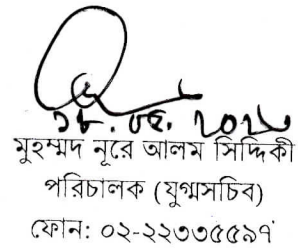 মুহম্মদ নূরে আলম সিদ্দিকী
পরিচালক (যুগ্মসচিব)
ফোন: ০২-২২৩৩৫৫৯৭